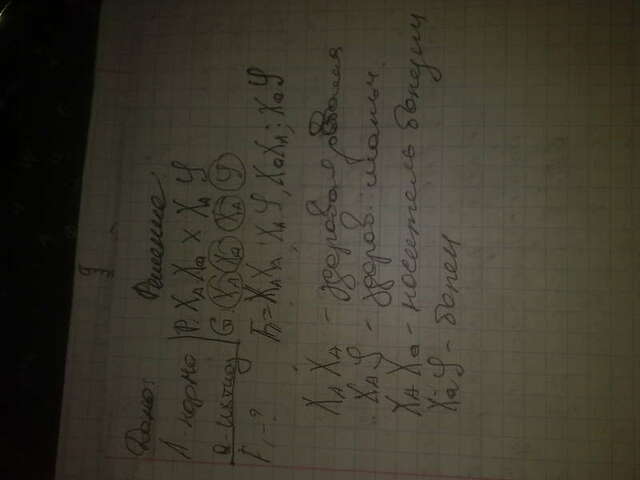 Дано:
А - норма
F₁ - ?
Решение:
P: XAXa × XAY
G: XA Xa XA Y
F₁ = XAXA; XAY; XaXA; XaY
XAXA - здоровая
XAY - здоров.
XAXa - носитель болезни
XaY - болен